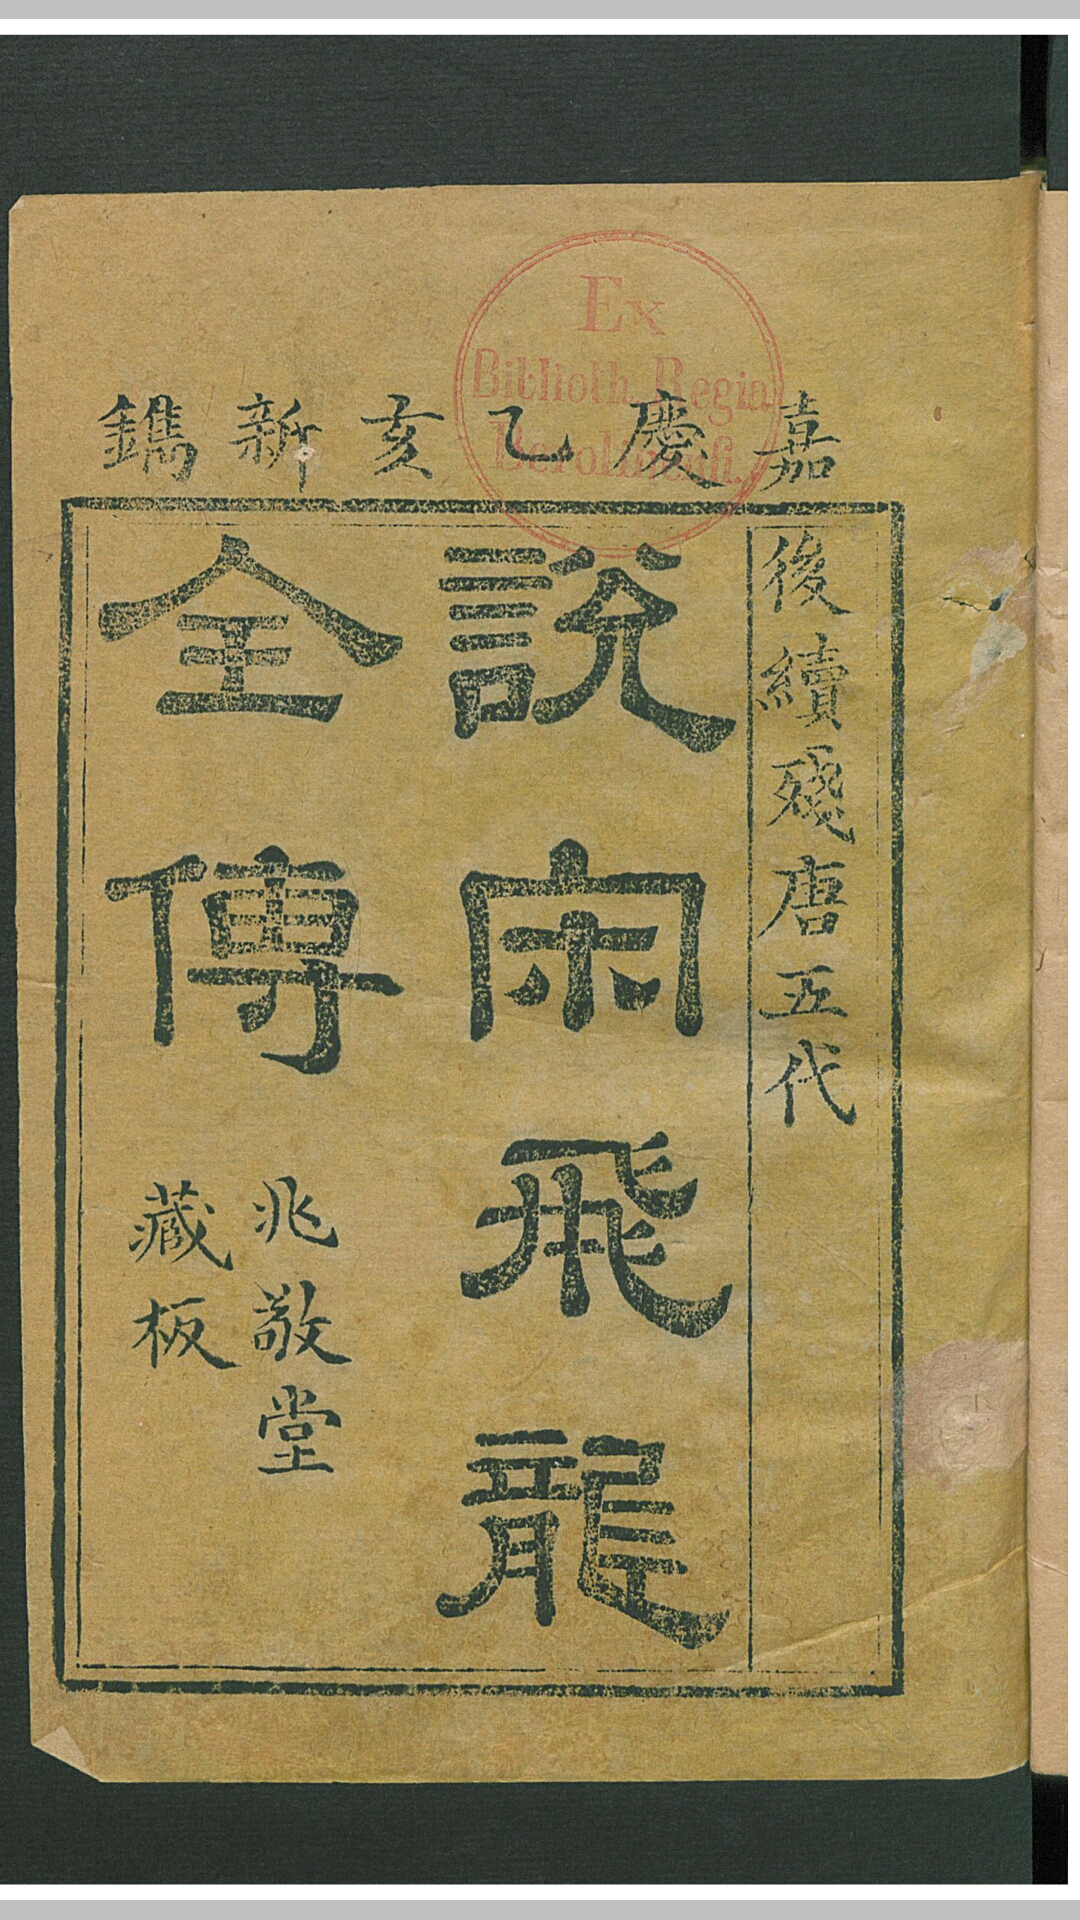 嘉慶乙亥新鐫
後續殘唐五代
說宋飛龍
全傳
兆敬堂
藏板
Ex
Biblioth. Regia
Berolinensi.